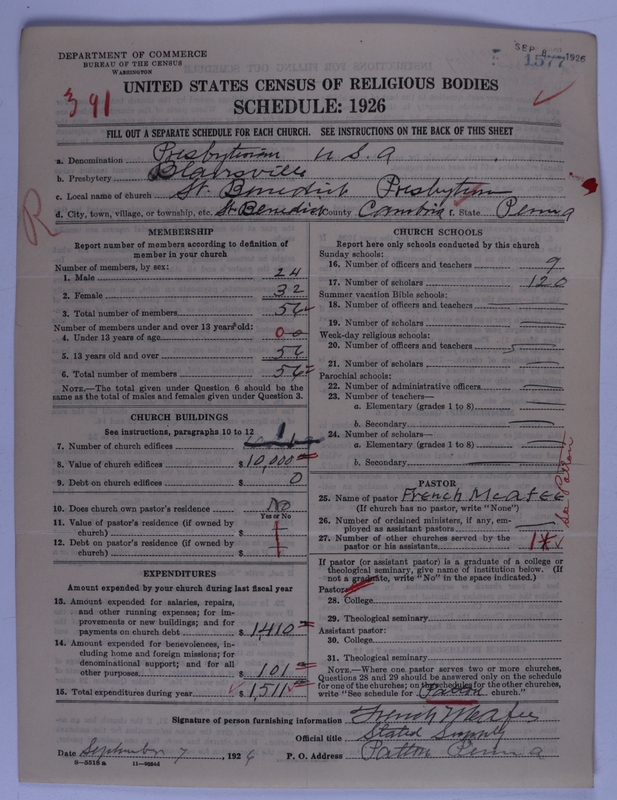 DEPARTMENT OF COMMERCE
BUREAU OF THE CENSUS
WASHINGTON
SEP 8 1926
1577
391
UNITED STATES CENSUS OF RELIGIOUS BODIES
SCHEDULE: 1926
FILL OUT A SEPARATE SCHEDULE FOR EACH CHURCH. SEE INSTRUCTIONS ON THE BACK OF THIS SHEET
a. Denomination Presbyterian U S A
b. Presbytery Blairsville
c. Local name of church St. Benedict Presbyterian
d. City, town, village, or township, etc. St. Benedict County Cambria f. State Penna
R
MEMBERSHIP
Report number of members according to definition of
member in your church
Number of members, by sex:
1. Male 24
2. Female 32
3. Total number of members 56
Number of members under and over 13 years old:
4. Under 13 years of age 0 0
5. 13 years old and over 56
6. Total number of members 56
NOTE.—The total given under Question 6 should be the
same as the total of males and females given under Question 3.
CHURCH BUILDINGS
See instructions, paragraphs 10 to 12
7. Number of church edifices 1
8. Value of church edifices $ 10,000
9. Debt on church edifices $ 0
10. Does church own pastor's residence No
Yes or No
11. Value of pastor's residence (if owned by
church) $
12. Debt on pastor's residence (if owned by
church) $
EXPENDITURES
Amount expended by your church during last fiscal year
13. Amount expended for salaries, repairs,
and other running expenses; for im-
provements or new buildings; and for
payments on church debt $ 1410
14. Amount expended for benevolences, in-
cluding home and foreign missions; for
denominational support; and for all
other purposes $ 101
15. Total expenditures during year $ 1,511
CHURCH SCHOOLS
Report here only schools conducted by this church
Sunday schools:
16. Number of officers and teachers 9
17. Number of scholars 120
Summer vacation Bible schools:
18. Number of officers and teachers
19. Number of scholars
Week-day religious schools:
20. Number of officers and teachers
21. Number of scholars
Parochial schools:
22. Number of administrative officers
23. Number of teachers—
a. Elementary (grades 1 to 8)
b. Secondary
24. Number of scholars—
a. Elementary (grades 1 to 8)
b. Secondary
PASTOR
25. Name of pastor French McAfee
(If church has no pastor, write "None")
26. Number of ordained ministers, if any, em-
ployed as assistant pastors
27. Number of other churches served by the
pastor or his assistants 1*
See Patton
If pastor (or assistant pastor) is a graduate of a college or
theological seminary, give name of institution below. (If
not a graduate, write "No" in the space indicated.)
Pastor:
28. College
29. Theological seminary
Assistant pastor:
30. College
31. Theological seminary
NOTE.—Where one pastor serves two or more churches,
Questions 28 and 29 should be answered only on the schedule
for one of the churches; on the schedules for the other churches,
write "See schedule for Patton church."
Signature of person furnishing information French McAfee
Official title Stated Supply
Date September 7, 1926 P. O. Address Patton Penna
8-5518 a